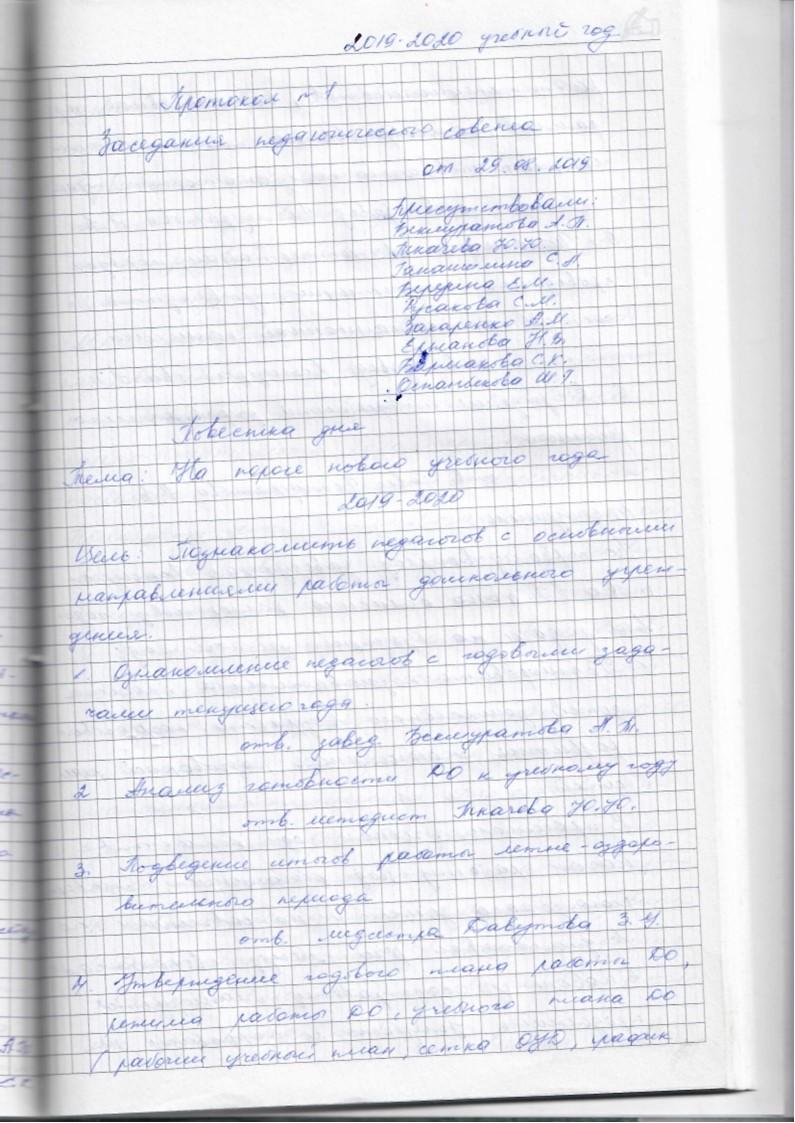 2019-2020 учебный год
Протокол №1
Заседания педагогического совета
от 29.08.2019
Присутствовали:
Бекмуратова А.Т.
Ткачева Ю.Ю.
С.А.
Е.М.
Русакова С.М.
Захаренко А.М.
Ерманова Н.В.
Бармакова С.К.
Оспанбекова Ш.Т.
Повестка дня
Тема: На пороге нового учебного года
2019-2020
Цель: Познакомить педагогов с основными
направлениями работы дошкольного учреж-
дения.
1 Ознакомление педагогов с годовыми зада-
чами текущего года.
отв. завед. Бекмуратова А.Т.
2 Анализ готовности ДО к учебному году
отв. методист Ткачева Ю.Ю.
3. Подведение итогов работы летне-оздоро-
вительного периода
отв. медсестра Давутова З.У.
4 Утверждение годового плана работы ДО,
режима работы ДО, учебного плана ДО
(рабочий учебный план, сетка ОУД, график